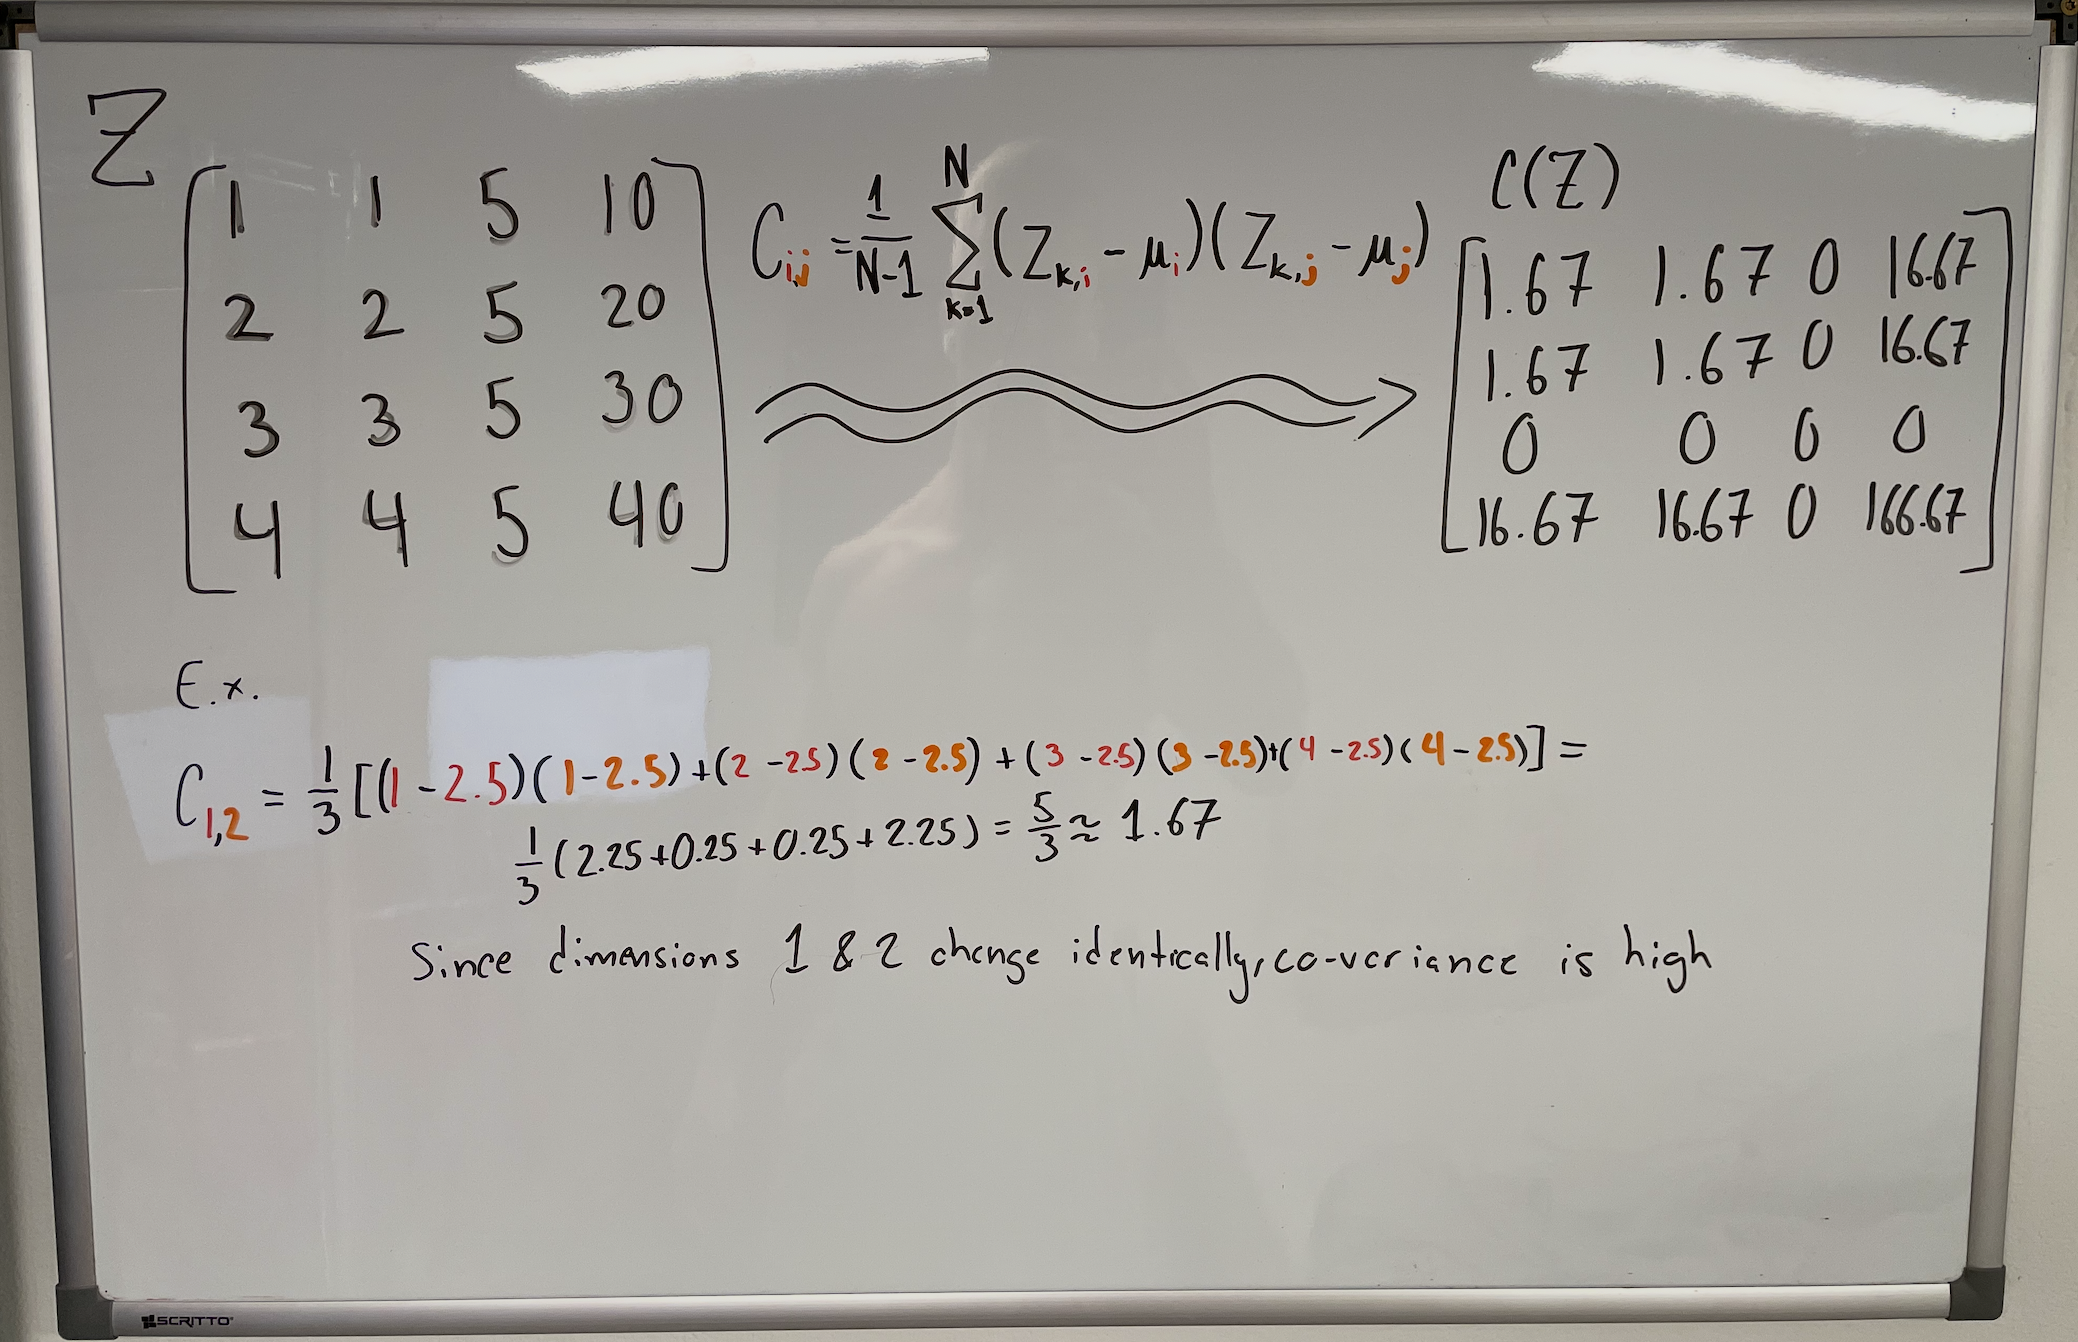 Z
1 1 5 10
2 2 5 20
3 3 5 30
4 4 5 40
C_{i,j} = \frac{1}{N-1} \sum_{k=1}^{N} (Z_{k,i} - μ_i)(Z_{k,j} - μ_j)
C(Z)
1.67 1.67 0 16.67
1.67 1.67 0 16.67
0 0 0 0
16.67 16.67 0 166.67
E.x.
C_{1,2} = \frac{1}{3} [(1-2.5)(1-2.5)+(2-2.5)(2-2.5)+(3-2.5)(3-2.5)+(4-2.5)(4-2.5)] =
\frac{1}{3} (2.25+0.25+0.25+2.25) = \frac{5}{3} ≈ 1.67
Since dimensions 1 & 2 change identically, co-variance is high
SCRITTO